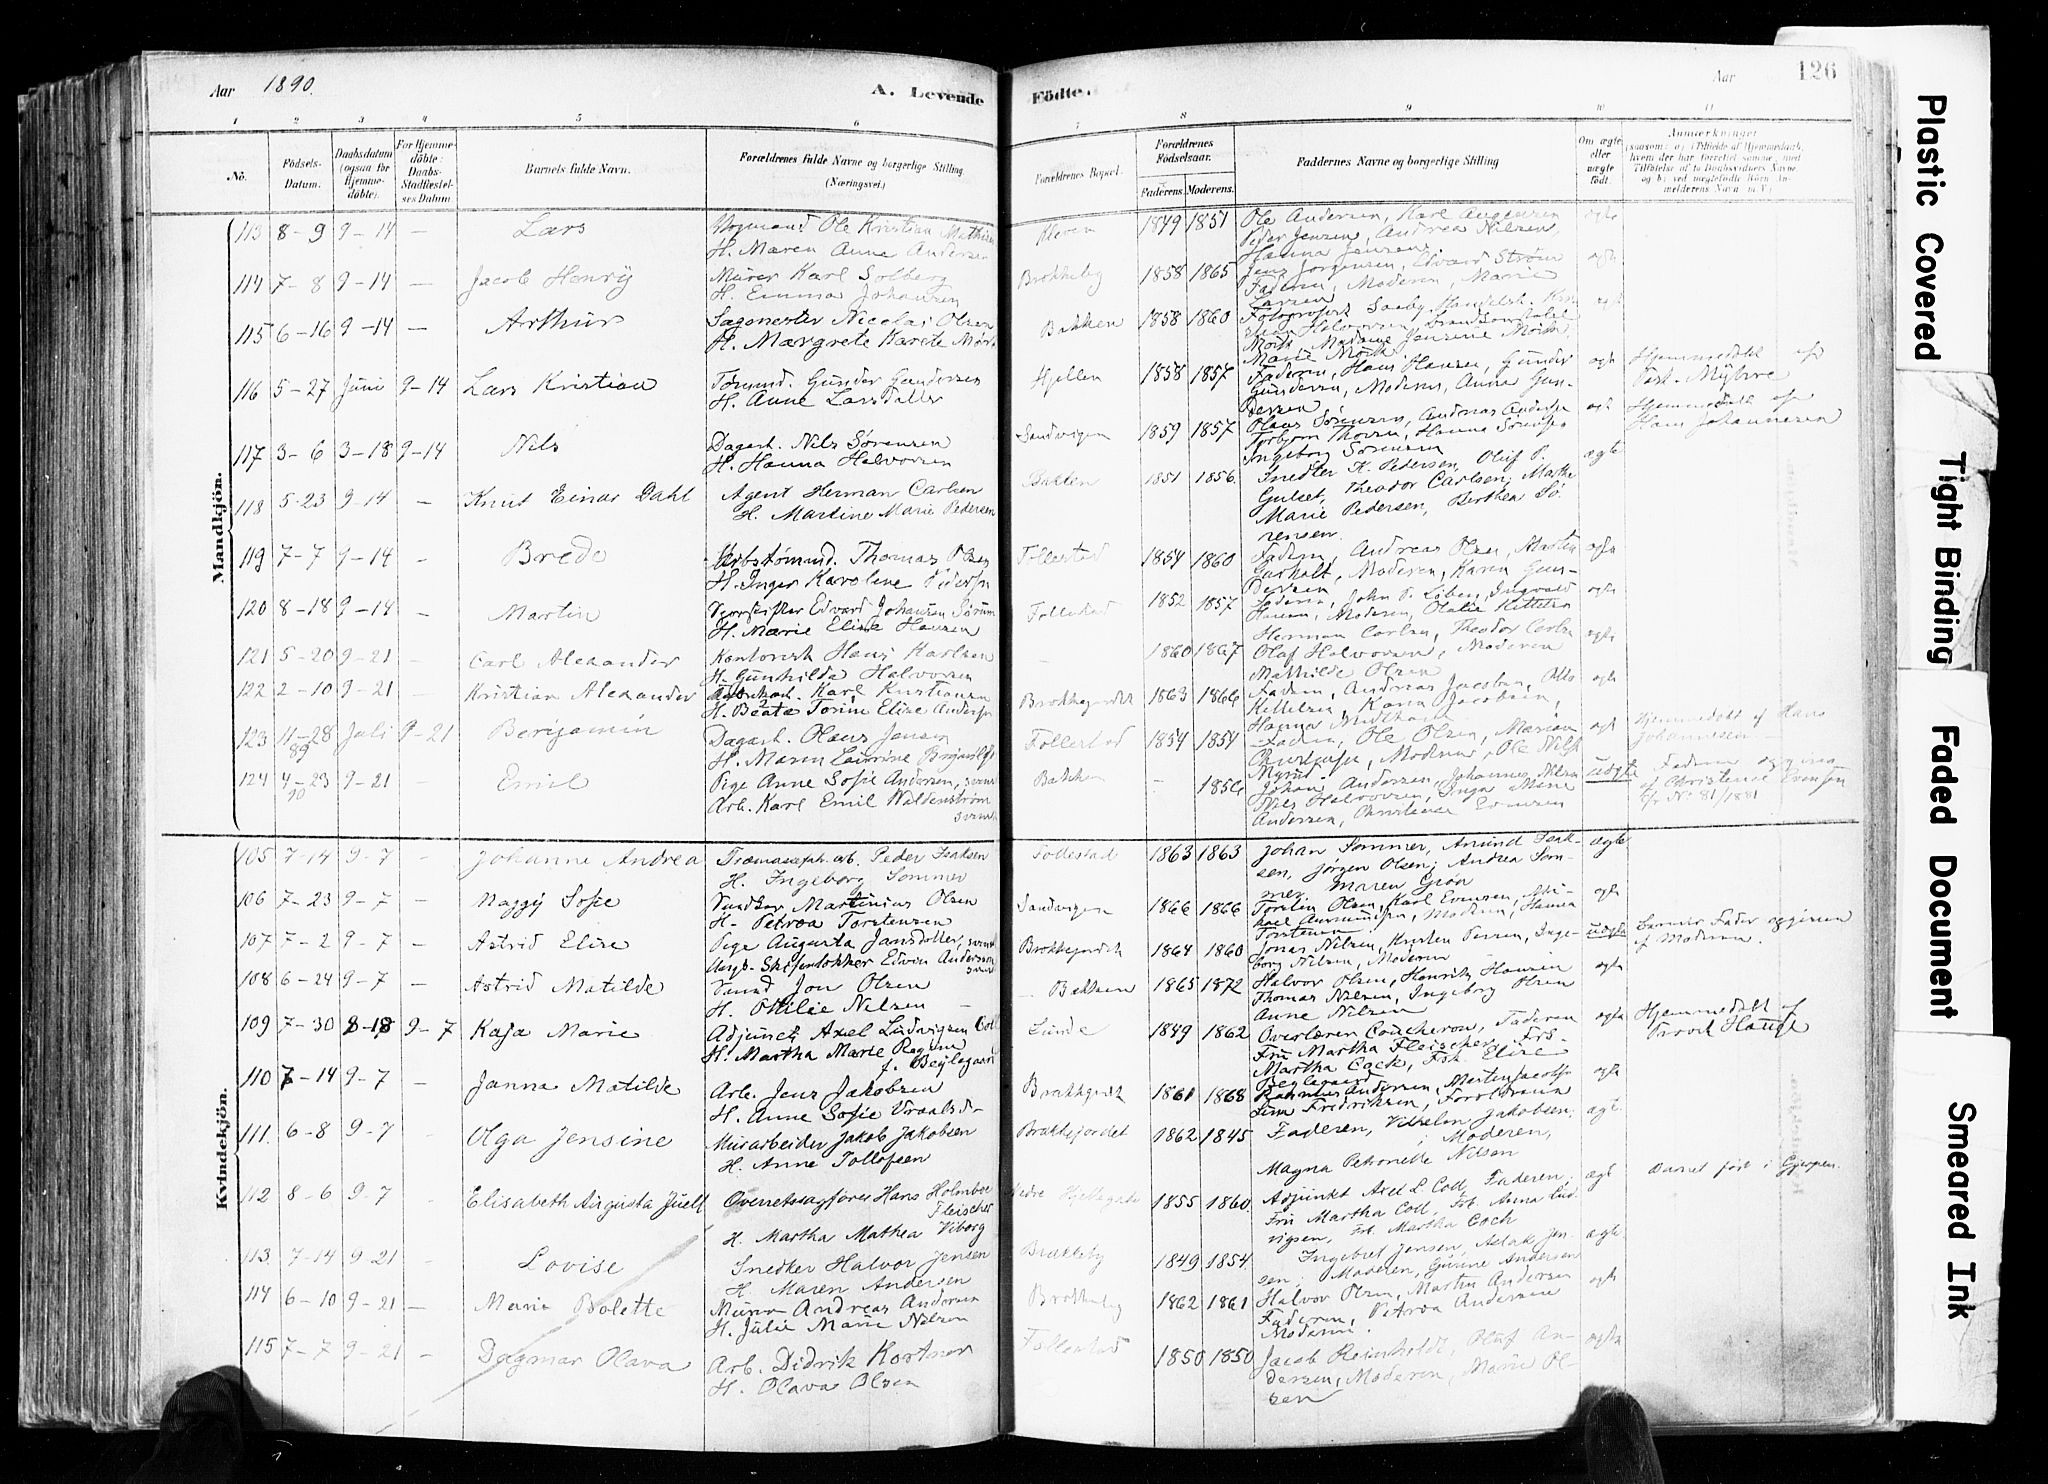 Aar 1890.
A. Levende
Födte.
Aar
126
1 2 3 4 5 6 7 8 9 10 11
No.
Födsels-Datum.
Daabsdatum (ogsaa for Hjemmedöbte).
For Hjemmedöbte: Daabs-Stadfæstelses Datum
Barnets fulde Navn.
Forældrenes fulde Navne og borgerlige Stilling (Næringsvei.)
Forældrenes Bopæl.
Forældrenes Födselsaar.
Faderens. Moderens.
Faddernes Navne og borgerlige Stilling
Om ægte eller uægte födt.
Anmærkninger
Mandkjön.
113 8-9 9-14 — Lars
Ole Kristian
H. Maren Anne Andersen
Kleven 1849 1851
Ole Andersen, Karl
Peder Jensen, Andrea Nilsen,
Hanna Jensen
ægte
114 7-8 9-14 — Jacob Henry
Murer Karl Solberg
H. Emma Johansen
Brekkeby 1858 1865
Jens Jorgensen, Edvard Strøm
Faderen, Moderen, Marie
Larsen
ægte
115 6-16 9-14 — Arthur
Sagmester Nicolai Olsen
H. Margrete Karete
Bakken 1858 1860
Fotograferk Saaby,
Halvorsen,
Madame Jensine
Marie
ægte
116 5-27 Juni 9-14 Lars Kristian
Tømmd. Gunder Gundersen
H. Anne Larsdatter
Hjellen 1858 1857
Faderen, Hans Hansen, Gunder
Gundersen, Moderen, Anne Gun-
dersen
ægte
Hjemmedøbt af
Past. Myhre
117 3-6 3-18 9-14 Nils
Dagarb. Nils Sørensen
H. Hanna Halvorsen
Sandvigen 1859 1857
Olaus Sørensen, Andreas Andersen
Torbjørn Thorsen, Hanna Sørensen
Ingeborg Sørensen
ægte
Hjemmedøbt af
Hans Johannesen
118 5-23 9-14 — Knut Einar Dahl
Agent Herman Carlsen
H. Martine Marie Pedersen
Bakken 1851 1856
Snedker K. Pedersen, Oluf P.
Gulset, Theodor Carlsen, Marthe
Marie Pedersen, Berthea Sø-
rensen.
ægte
119 7-7 9-14 — Brede
Thomas Olsen
H. Inger Karoline Pedersen
Follestad 1854 1860
Fadern, Andreas Olsen,
Moderen, Karen Gun-
dersen
ægte
120 8-18 9-14 — Martin
Edvard Johansen Sørum
H. Marie Elise Hansen
Follestad 1852 1857
Faderen, John P. Ingvald
Hansen, Moderen, Olalie Kittelsen
ægte
121 5-20 9-21 — Carl Alexander
Kontorist Hans Karlsen
H. Gunhilda Halvorsen
— 1860 1867
Herman Carlsen, Theodor Carlsen
Olaf Halvorsen, Moderen
Mathilde Olsen
ægte
122 2-10 9-21 — Kristian Alexander
Karl Kristiansen
H. Beate Torine Elise Andersen
Brekkejordet 1863 1866
Fadern, Andreas Jacobsen, Otto
Kittelsen, Karen Jacobsen,
Hanna
ægte
123 11-28 89 Juli 9-21 Benjamin
Dagarb. Olaus Jensen
H. Maren Laurine
Follestad 1854 1854
Fadern, Ole Olsen, Maren
Moderen, Ole Nils
ægte
Hjemmedøbt af Hans
Johannesen —
124 4-23 90 9-21 — Emil
Pige Anne Sofie Andersen,
Arb. Karl Emil Waldenstrøm
Bakken — 1856
Johan Andersen, Johannes Nilsen
Nils Halvorsen, Inga Mine
Andersen, Christense Evensen
uægte
Faderen opgiven
af Christense Evensen
cfr No 81/1881
Kvindekjön.
105 7-14 9-7 — Johanne Andrea
Peder Isaksen
H. Ingeborg Sommer
Follestad 1863 1863
Johan Sommer, Amund Isak-
sen, Jørgen Olsen, Andrea Som-
mer, Maren Grøn
ægte
106 7-23 9-7 — Maggy Sofie
Snedker Martinius Olsen
H. Petrea Torstensen
Sandvigen 1866 1866
Torstin Olsen, Karl Evensen,
Moderen, Hanna
Torstensen
ægte
107 7-2 9-7 — Astrid Elise
Pige Augusta Jansdotter,
Skifendækker Edvin Andersson
Brekkejordet 1864 1860
Jonas Nilsen, Kristen Persen, Inge-
borg Nilsen, Moderen
uægte
Barnets Fader opgiven
af Moderen.
108 6-24 9-7 — Astrid Matilde
Jon Olsen
H. Othilie Nilsen —
Bakken 1865 1872
Halvor Olsen, Henrik Hansen
Thomas Nilsen, Ingeborg Olsen
Anne Nilsen
ægte
109 7-30 8-18 9-7 Kaja Marie
Adjunct Axel Ludvigsen Coll
H. Martha Marie Regine
f. Beylegaard
Lunde 1849 1862
Overlærer Coucheron, Faderen
Fru Martha Fleischer, Frk.
Martha Cock, Frk Elise
Beylegaard
ægte
Hjemmedøbt af
Provst Hauge
110 7-14 9-7 — Janna Matilde
Arb. Jens Jakobsen
H. Anne Sofie Vraalsd-
Brekkejordet 1861 1868
Rasmus Andersen, Martin Jacobsen
Lina Fredriksen, Forældrene
ægte
111. 6-8 9-7 — Olga Jensine
Murarbeider Jakob Jakobsen
H. Anne Tollefsen
Brekkejordet 1862 1845
Faderen, Vilhelm Jakobsen,
Moderen,
Magna Petronelle Nilsen
ægte.
112 8-6 9-7 Elisabeth Augusta Juell
Overretssagfører Hans Holmboe
Fleischer
H. Martha Mathea Viborg
Nedre Hjellegade 1855 1860
Adjunkt Axel L. Coll, Faderen,
Fru Martha Coll, Frk. Anna Lud-
vigsen, Frk. Martha Cock
ægte
Barnet født i Gjerpen.
113. 7-14 9-21 Lovise
Snedker Halvor Jensen
H. Maren Andersen
Brekkeby 1849 1854
Ingebret Jensen, Aslak Jen-
sen, Moderen, Gurine Andersen
ægte.
114 6-10 9-21 — Marie Bolette
Murer Andreas Andersen
H. Julie Marie Nilsen
Brekkeby 1862 1861
Halvor Olsen, Martin Andersen
Faderen, Petrea Andersen
Moderen.
ægte
115 7-7 9-21 — Dagmar Olava
Arb. Didrik Kortner
H. Olava Olsen
Follestad 1850 1850
Jacob Reinholdt, Olaf An-
dersen, Moderen, Marie Ol-
sen
ægte
Plastic Covered
Tight Binding
Faded Document
Smeared Ink